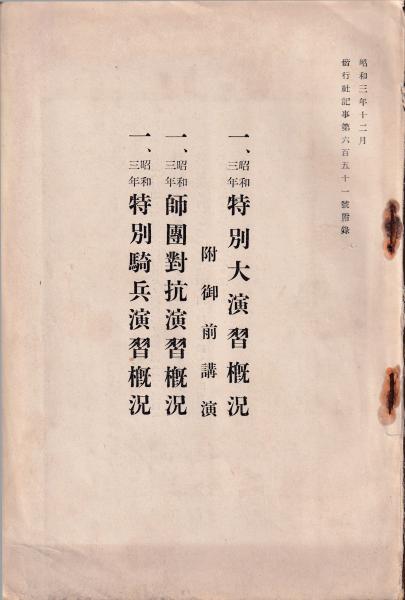 昭和三年十二月
偕行社記事第六百五十一號附錄
一、昭和三年特別大演習槪況
附御前講演
一、昭和三年師團對抗演習槪況
一、昭和三年特別騎兵演習槪況